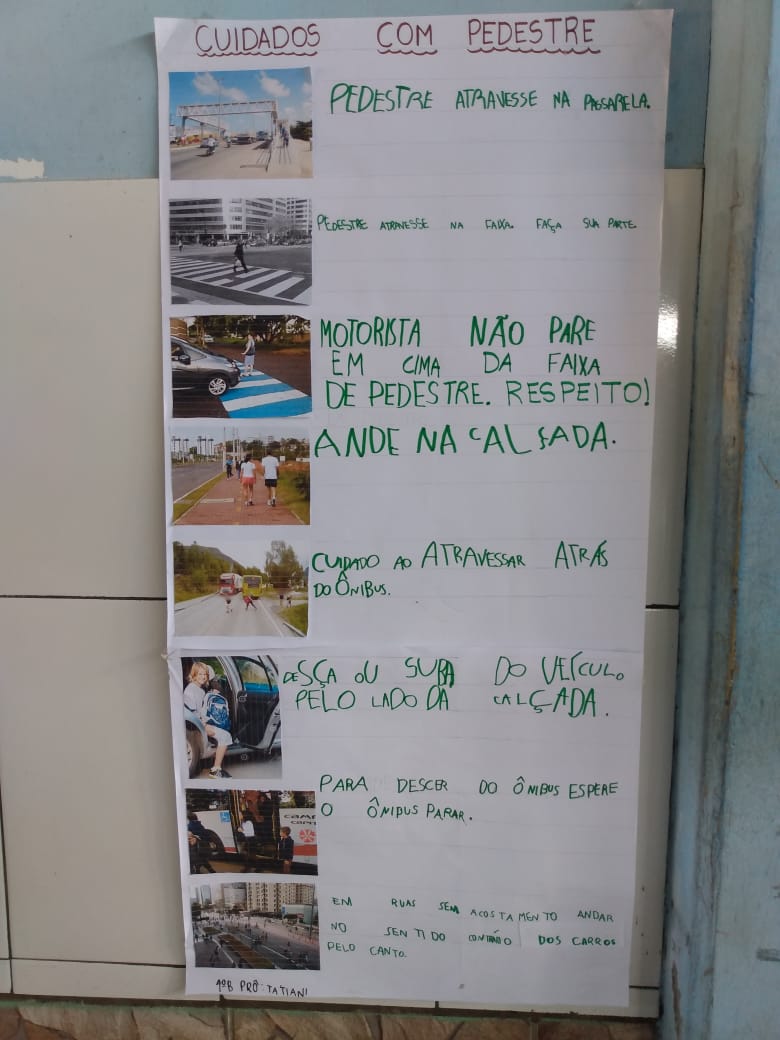 CUIDADOS COM PEDESTRE
PEDESTRE ATRAVESSE NA PASSARELA.
PEDESTRE ATRAVESSE NA FAIXA. FAÇA SUA PARTE.
MOTORISTA NÃO PARE
EM CIMA DA FAIXA
DE PEDESTRE. RESPEITO!
ANDE NA CALSADA.
CUIDADO AO ATRAVESSAR ATRÁS
DO ÔNIBUS.
DESÇA OU SUBA DO VEÍCULO
PELO LADO DA CALÇADA.
PARA DESCER DO ÔNIBUS ESPERE
O ÔNIBUS PARAR.
EM RUAS SEM ACOSTAMENTO ANDAR
NO SENTIDO CONTRÁRIO DOS CARROS
PELO CANTO.
1ºB PRÔ: TATIANI